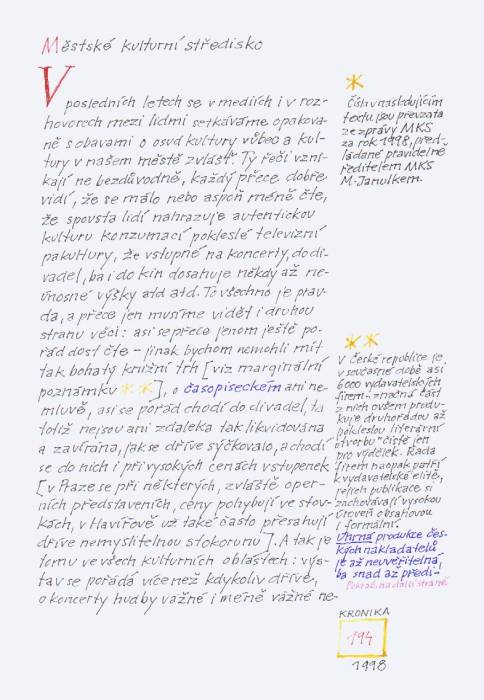 Městské kulturní středisko
V posledních letech se v mediích i v roz-
hovorech mezi lidmi setkáváme opakova-
ně s obavami o osud kultury vůbec a kul-
tury v našem městě zvlášť. Ty řeči vzni-
kají ne bezdůvodně, každý přece dobře
vidí, že se málo nebo aspoň méně čte,
že spousta lidí nahrazuje autentickou
kulturu konzumací pokleslé televizní
pakultury, že vstupné na koncerty, do di-
vadel, ba i do kin dosahuje někdy až ne-
únosné výšky atd atd. To všechno je prav-
da, a přece jen musíme vidět i druhou
stranu věci: asi se přece jenom ještě po-
řád dost čte – jinak bychom nemohli mít
tak bohatý knižní trh [viz marginální
poznámku **], o časopiseckém ani ne-
mluvě, asi se pořád chodí do divadel, ta
totiž nejsou ani zdaleka tak likvidována
a zavírána, jak se dříve sýčkovalo, a chodí
se do nich i při vysokých cenách vstupenek
[v Praze se při některých, zvláště oper-
ních představeních, ceny pohybují ve stov-
kách, v Havířově už také často přesahují
dříve nemyslitelnou stokorunu]. A tak je
tomu ve všech kulturních oblastech: výs-
tav se pořádá více než kdykoliv dříve,
o koncerty hudby vážné i méně vážné ne-
*
Čísla v následujícím
textu jsou převzata
ze zprávy MKS
za rok 1998, před-
kládané pravidelně
ředitelem MKS
M. Janulkem.
**
V České republice je
v současné době asi
6000 vydavatelských
firem – značná část
z nich ovšem produ-
kuje druhořadou až
pokleslou literární
"tvorbu" čistě jen
pro výdělek. Řada
firem naopak patří
k vydavatelské elitě,
jejich publikace si
zachovávají vysokou
úroveň obsahovou
i formální.
Úhrná produkce čes-
kých nakladatelů
je až neuvěřitelná,
ba snad až předi-
Pokrač. na další straně
KRONIKA
194
1998